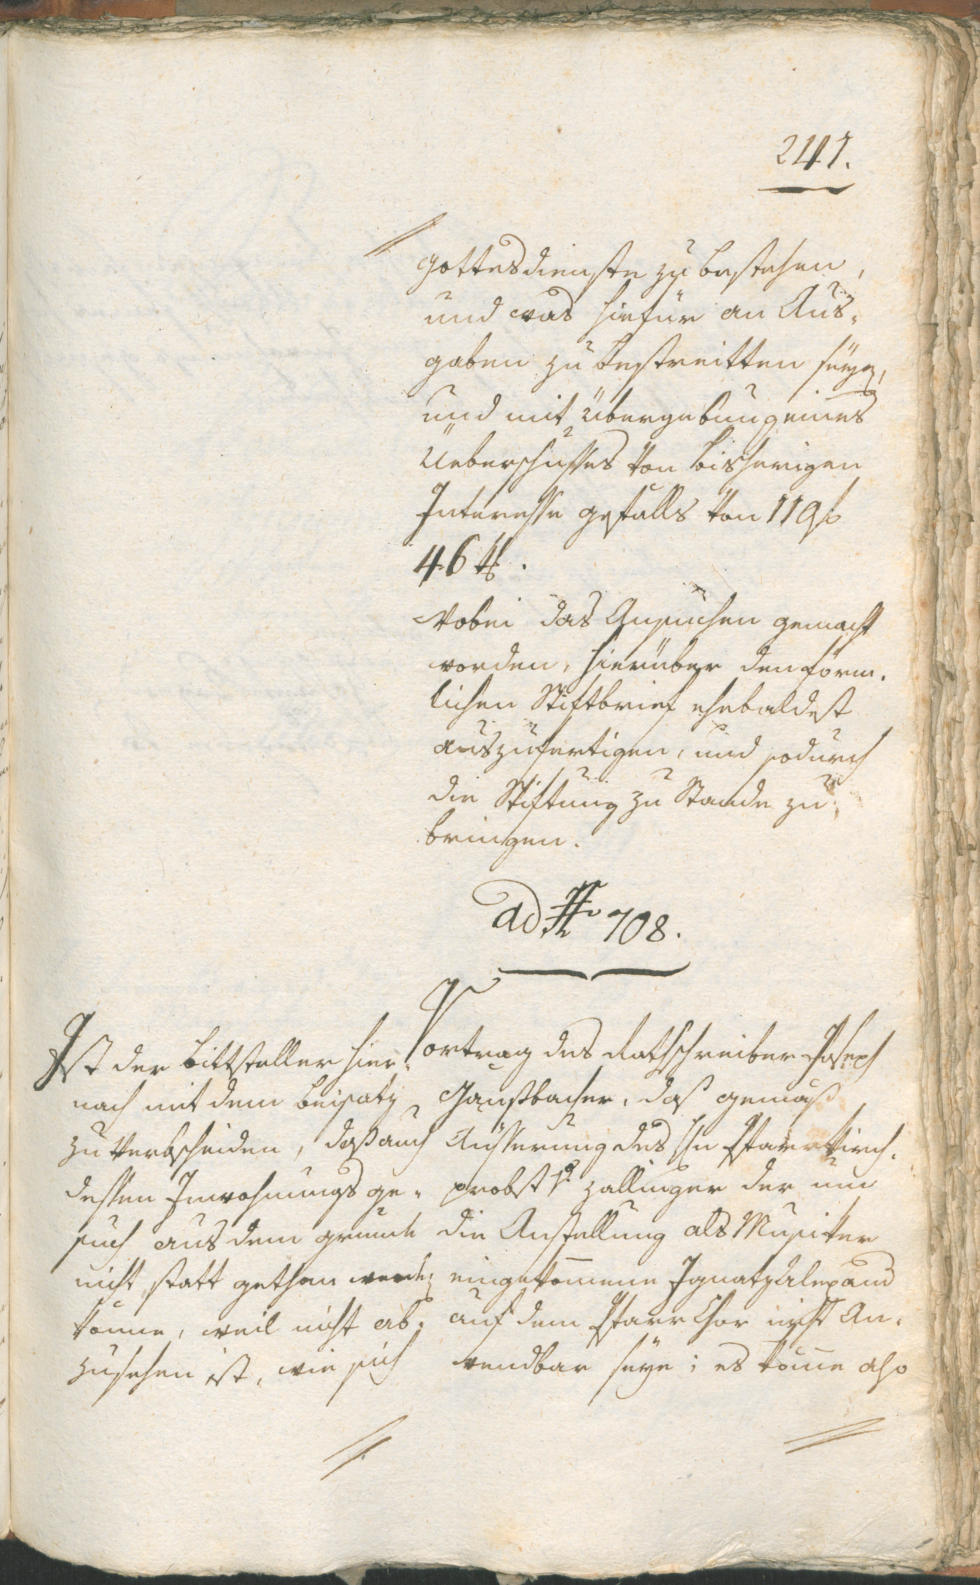 241.
gottesdienste zu bestehen,
und was hiefür an Aus-
gaben zu bestreitten seye,
und mit übergebung eines
Ueberschusses von bisherigen
Interesse gefälls von 11 f
46 x.
Wobei das Ansuchen gemacht
worden, hierüber den förm-
lichen Stiftbrief ehebaldest
auszufertigen, und sodurch
die Stiftung zu Stande zu
bringen.
ad No 708.
Ist der Bittsteller hier-
nach mit dem beisatz
zu verbscheiden, daß auch
dessen Inwohnungs ge-
such aus dem grunde
nicht statt gethan werden
könne, weil nicht ab-
zusehen ist, wie sich
Vortrag des Rathschreiber Joseph
Gansbacher, daß gemäß
Äusserung des Hn Pfarrkirch-
probst v. Zallinger der um
die Anstellung als Musiker
eingekommene Ignatz Alexand
auf dem Pfarr Chor nicht An-
wendbar seye; es könne also